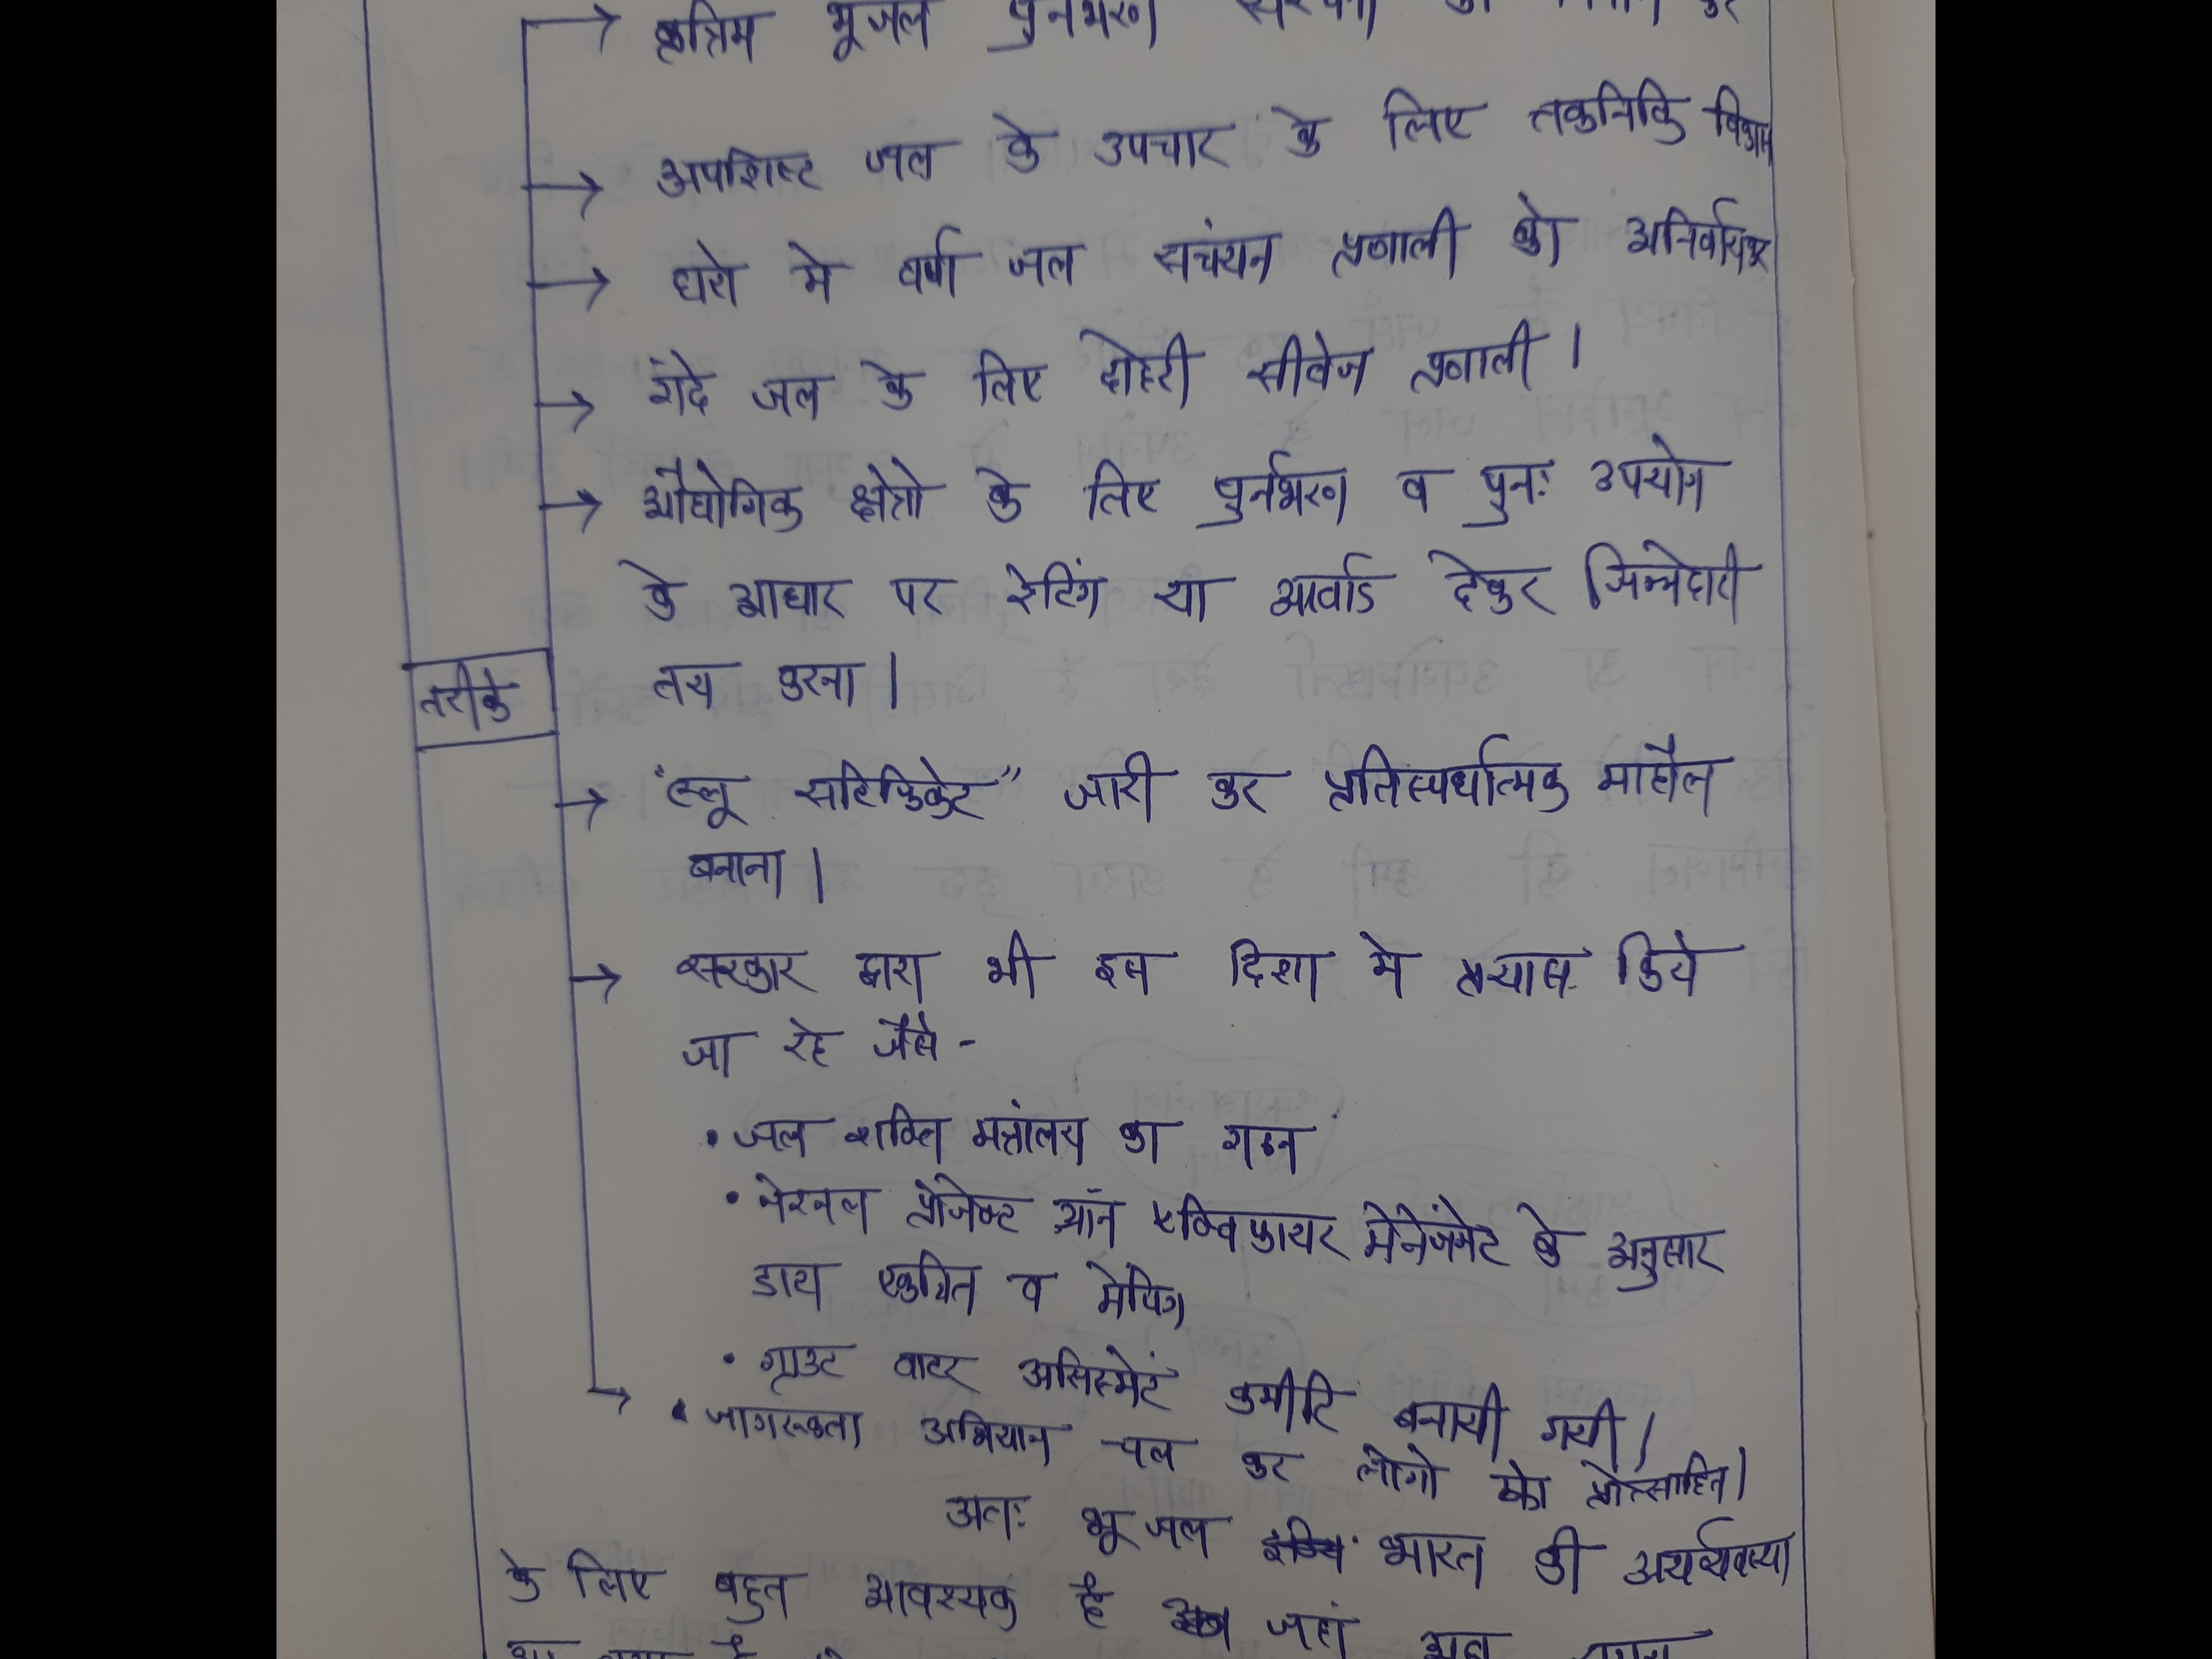 कृत्रिम भूजल पुनर्भरण
अपशिष्ट जल के उपचार के लिए तकनिकि विकास
घरो मे वर्षा जल सचंयन प्रणाली को अनिर्वायकर
गंदे जल के लिए दोहरी सीवेज प्रणाली ।
औघोगिक क्षेत्रो के लिए पुर्नभरण व पुनः उपयोग
के आधार पर रेटिंग या अर्वाड देकर जिम्मेदारी
तरीके तय करना ।
"ब्लू सर्टिफिकेट" जारी कर प्रतिस्पर्धात्मक माहौल
बनाना ।
सरकार द्वारा भी इस दिशा मे प्रयास किये
जा रहे जैसे -
• जल शक्ति मत्रांलय का गठन
• नेश्नल प्रोजेक्ट ऑन एक्विफायर मेनेजमेंट के अनुसार
डाटा एकत्रित व मेपिंग
• ग्राउंट वाटर असिस्मेंट कमीटि बनायी गयी ।
• जागरूकता अभियान चल कर लोगो को प्रोत्साहित ।
अतः भू जल भारत की अर्थव्यवस्था
के लिए बहुत आवश्यक है जहां